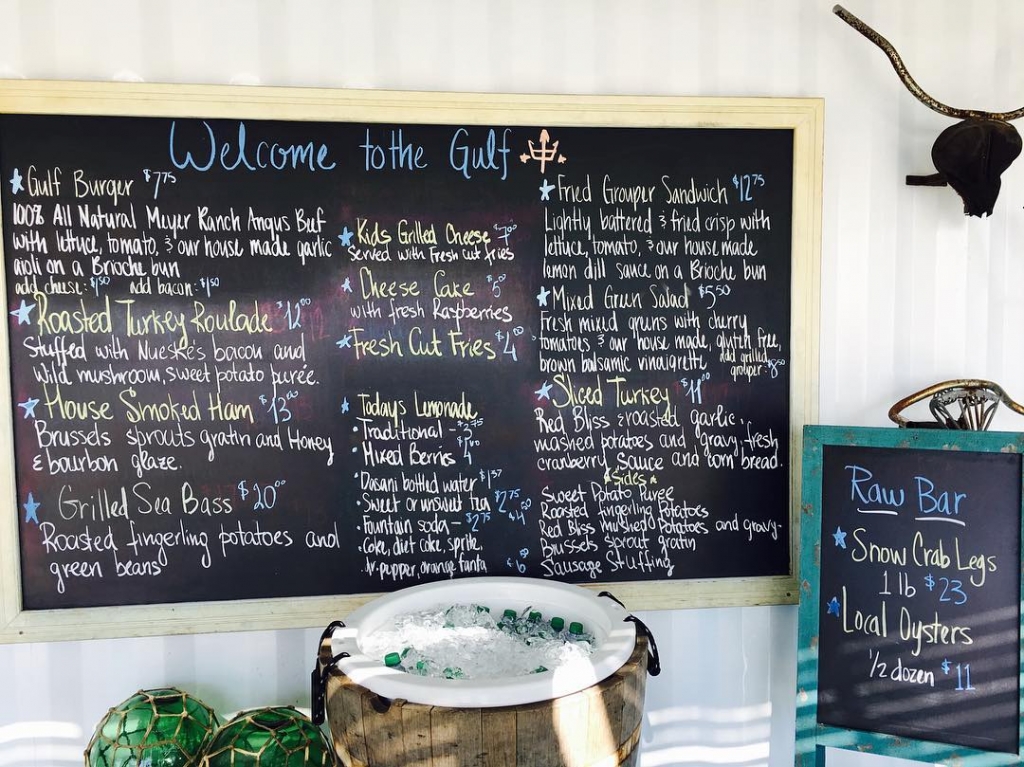 Welcome to the Gulf
Gulf Burger $7.75
100% All Natural Meyer Ranch Angus Beef
with lettuce, tomato, & our house made garlic
aioli on a Brioche bun
add cheese: $1.50 add bacon: $1.50
Roasted Turkey Roulade $12.00
Stuffed with Nueske's bacon and
wild mushroom, sweet potato purée.
House Smoked Ham $13.00
Brussels sprouts gratin and Honey
& bourbon glaze.
Grilled Sea Bass $20.00
Roasted fingerling potatoes and
green beans
Kids Grilled Cheese $7.00
Served with Fresh cut fries
Cheese Cake $5.00
with fresh Raspberries
Fresh Cut Fries $4
Todays Lemonade
Traditional - $2.75
Mixed Berries 4
Dasani bottled water $1.37
Sweet or unsweet tea $2.75
Fountain soda - $2.75
Coke, diet coke, sprite,
dr. pepper, orange fanta
Fried Grouper Sandwich $12.75
Lightly battered & fried crisp with
lettuce, tomato, & our house made
lemon dill sauce on a Brioche bun
Mixed Green Salad $5.50
Fresh mixed gruns with cherry
tomatoes & our house made, gluten free,
brown balsamic vinaigrette add grilled
grouper: $8.50
Sliced Turkey $11.00
Red Bliss & roasted garlic
mashed potatoes and gravy, fresh
cranberry sauce and corn bread.
Sides
Sweet Potato Puree
Roasted fingerling Potatoes
Red Bliss Mashed Potatoes and gravy
Brussels sprout gratin
Sausage Stuffing
Raw Bar
Snow Crab Legs
1 lb $23
Local Oysters
1/2 dozen $11